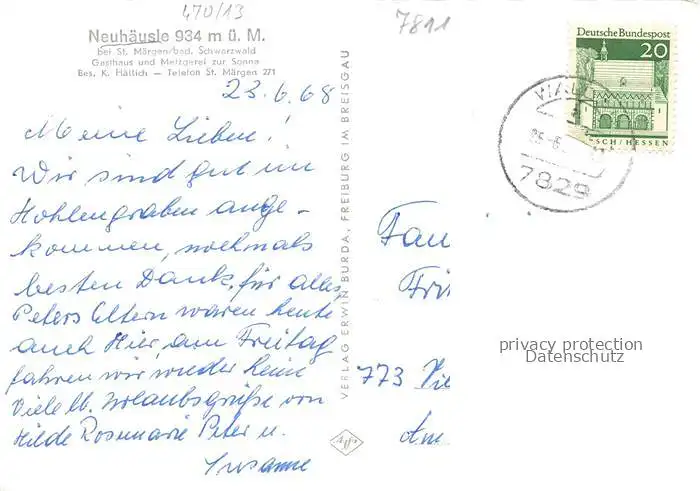 470/13
7811
Neuhäusle 934 m ü. M.
bei St. Märgen/bad. Schwarzwald
Gasthaus und Metzgerei zur Sonne
Bes. K. Hättich – Telefon St. Märgen 271
23.6.68
Meine Lieben!
Wir sind gut im
Hohlengraben ange-
kommen, nochmals
besten Dank für alles,
Peters Eltern waren heute
auch Hier, am Freitag
fahren wir wieder heim
Viele lb. Urlaubsgrüße von
Hilde Rosemarie Peter u.
Susanne
VERLAG ERWIN BURDA, FREIBURG IM BREISGAU
Deutsche Bundespost
20
SCH/HESSEN
7829
Fam
773
Am
privacy protection
Datenschutz